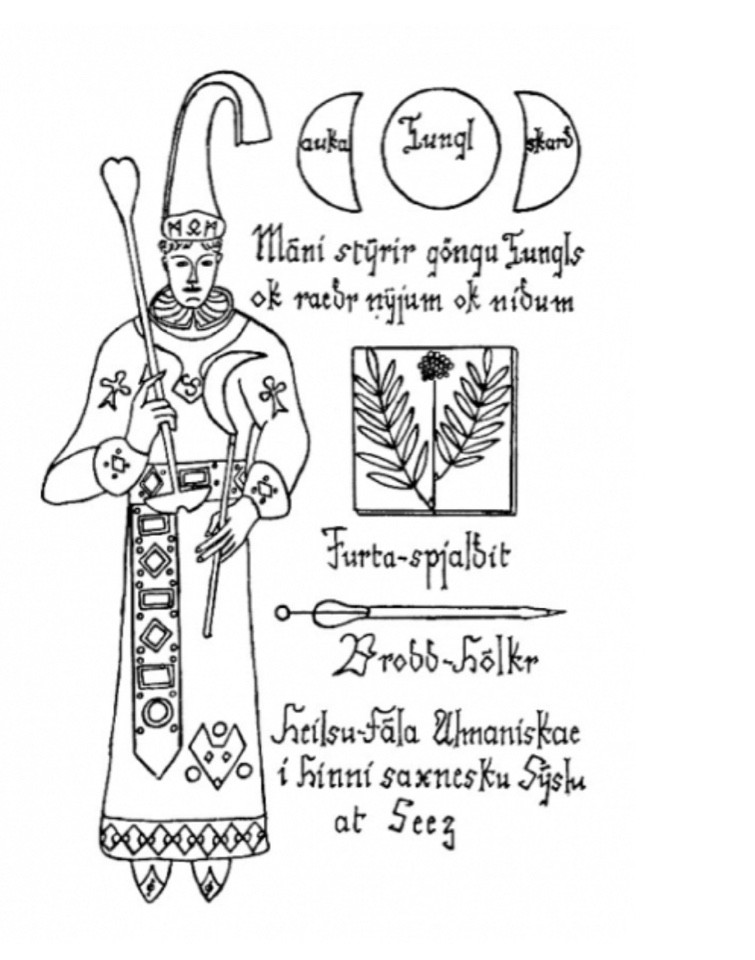 auka Tungl skarð
Māni stȳrir gōngu Tungls
ok raeðr nȳjum ok niðum
Jurta-spjaldit
Brodd-hōlkr
Heilsu-fāla Almaniskae
i hinni saxnesku Sȳslu
at Seez